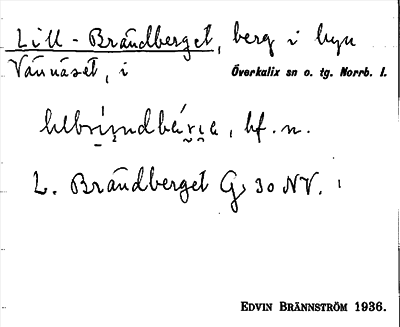 Lill-Brändberget, berg i byn
Vännäset, i Överkalix sn o. tg. Norrb. l.
bf. n.
L. Brändberget G 30 NV.
EDVIN BRÄNNSTRÖM 1936.